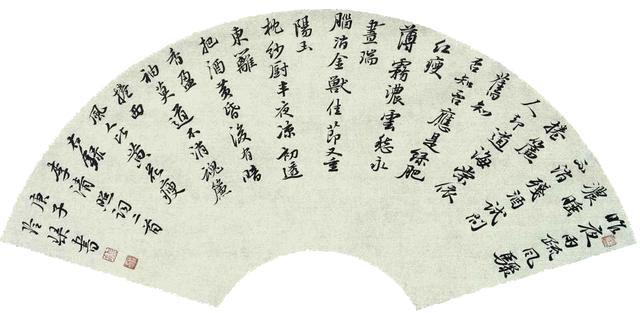 昨夜雨疏風驟
濃睡
不消殘酒試問
捲簾
人却道海棠依
舊知
否知否應是綠肥
紅瘦
薄霧濃雲愁永
晝瑞
腦消金獸佳節又重
陽玉
枕紗廚半夜涼初透
東籬
把酒黃昏後有暗
香盈
袖莫道不消魂簾
捲西
風人比黃花瘦
右錄
李清照詞二首
庚子
書